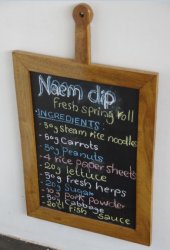 Naem dip
fresh spring roll
INGREDIENTS:
- 50g steam rice noodles
- 50g Carrots
- 50g Peanuts
- 4 rice paper sheets
- 20g lettuce
- 50g fresh herps
- 20g Sugar
- 10g Pork powder
- 50g Cabbage
- 20cl Fish sauce